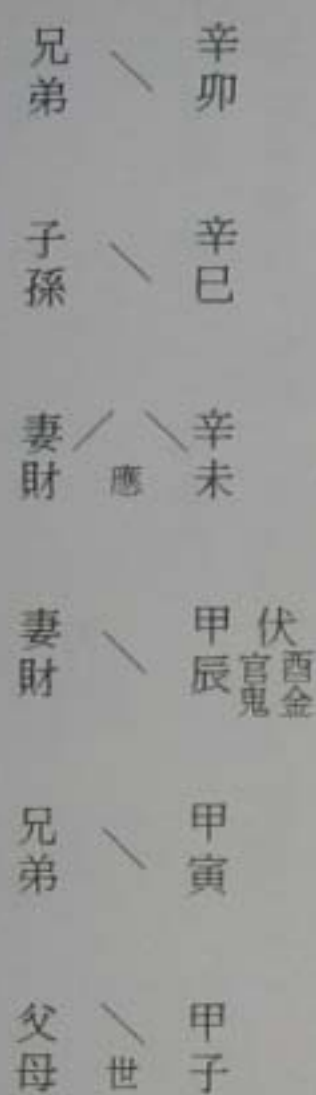 辛卯
兄弟
辛巳
子孫
辛未
應
妻財
伏
酉金
官鬼
甲辰
妻財
甲寅
兄弟
甲子
世
父母